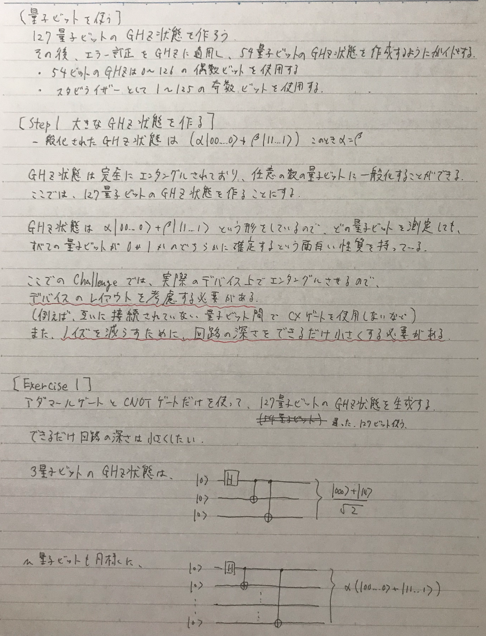 (量子ビットを使う]
127量子ビットのGHZ状態を作ろう
その後、エラー訂正をGHZに適用し、54量子ビットのGHZ状態を作成するようにガイドする.
・54ビットのGHZは0〜126の偶数ビットを使用する
・スタビライザーとして1〜125の奇数ビットを使用する.
[Step1 大きなGHZ状態を作る]
一般化されたGHZ状態は (α|00…0〉+β|11…1〉) このときα=β
GHZ状態は完全にエンタングルされており、任意の数の量子ビットに一般化することができる.
ここでは、127量子ビットのGHZ状態を作ることにする.
GHZ状態は α|00…0〉+β|11…1〉という形をしているので、どの量子ビットを測定しても、
すべての量子ビットが0か1かのどちらかに確定するという面白い性質を持っている.
ここでのChallengeでは、実際のデバイス上でエンタングルさせるので、
デバイスのレイアウトを考慮する必要がある.
(例えば、互いに接続されていない量子ビット間でCXゲートを使用しないなど)
また、ノイズを減らすために、回路の深さをできるだけ小さくする必要がある.
[Exercise 1]
アダマールゲートとCNOTゲートだけを使って、127量子ビットのGHZ状態を生成する.
(54量子ビット) 127ビット使う.
できるだけ回路の深さは小さくしたい.
3量子ビットのGHZ状態は、
|0〉 H
|0〉
|0〉
|000〉+|111〉
√2
n量子ビットも同様に、
|0〉 H
|0〉
⋮
|0〉
α(|00…0〉+|11…1〉)